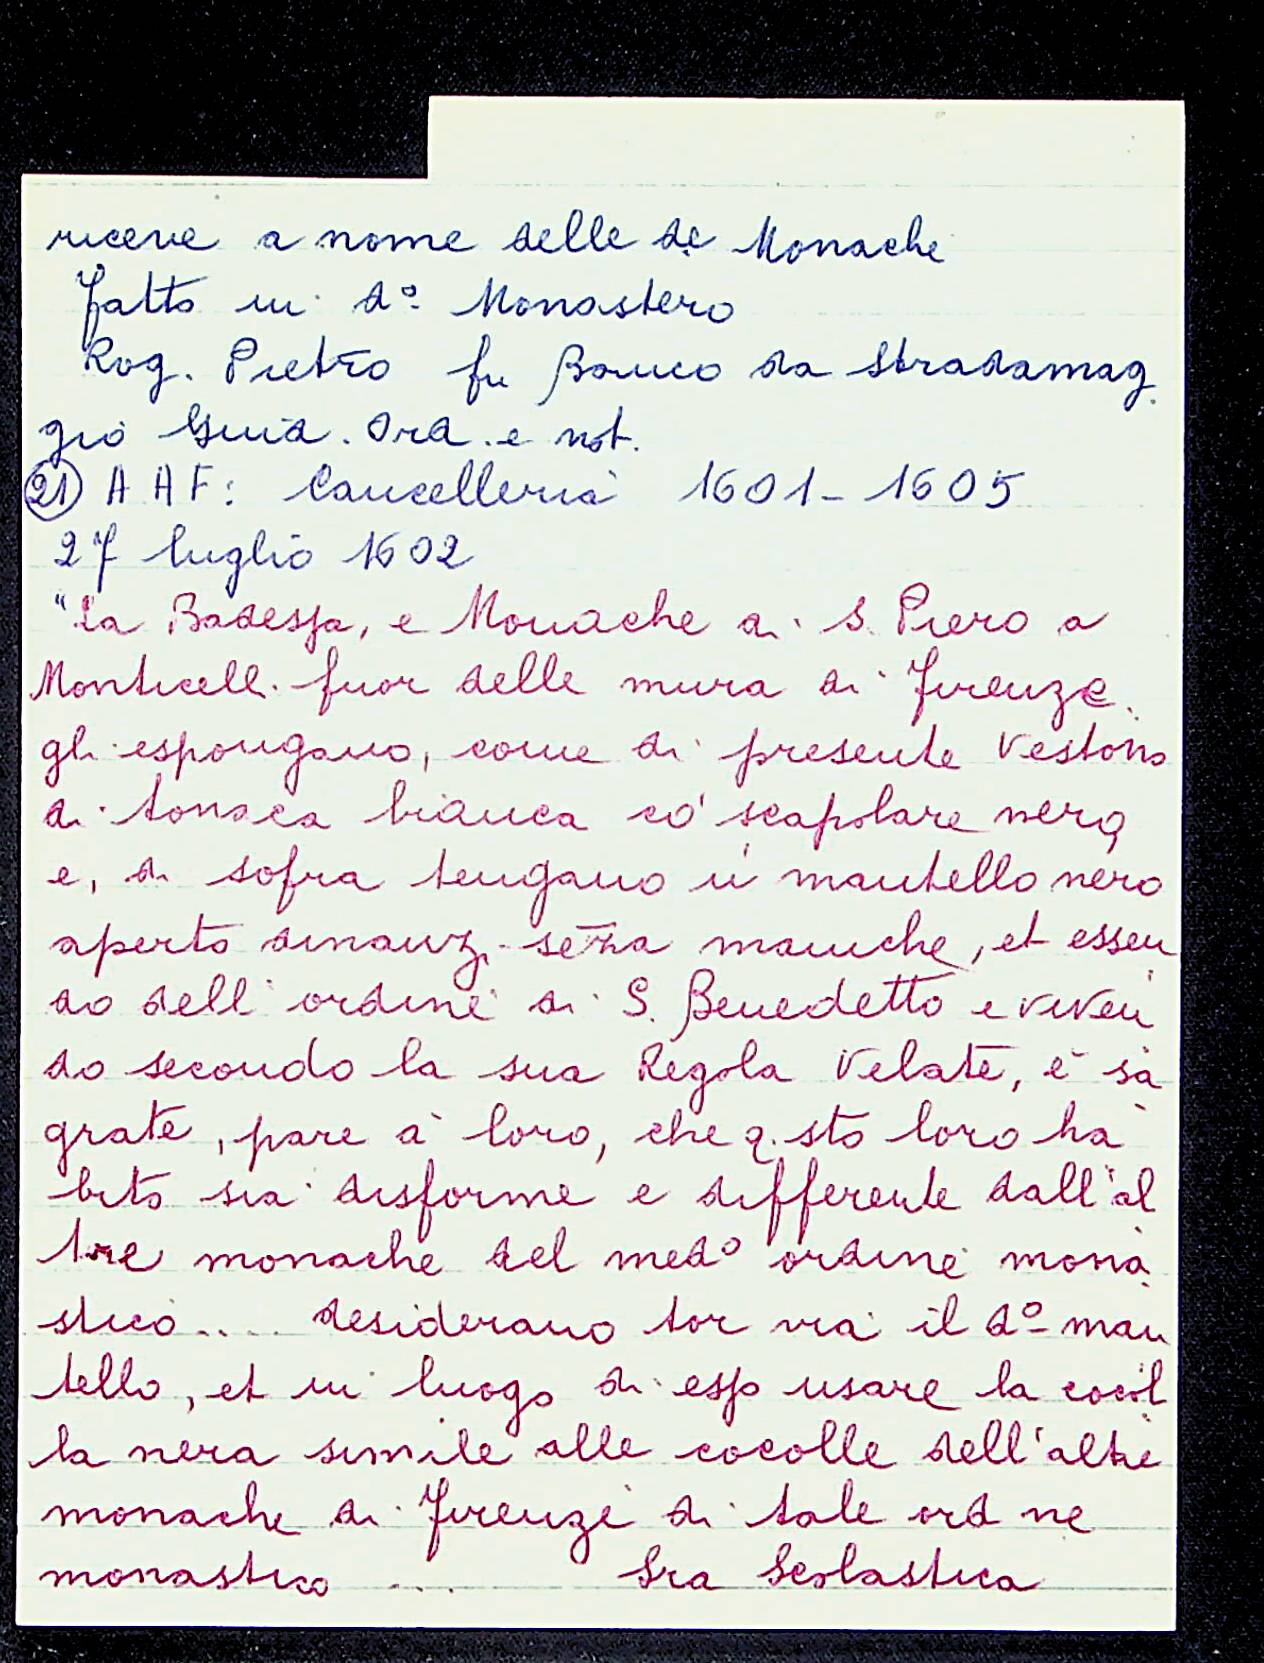 riceve a nome delle de Monache
fatto in do Monastero
Rog. Pietro fu Banco da Stradamag
gio Giud. Ord. e not.
(21) A A F: Cancelleria 1601-1605
27 luglio 1602
"La Badessa, e Monache di S. Piero a
Monticelli fuor delle mura di Firenze
gli espongano, come di presente vestono
di tonaca bianca co' scapolare nero,
e, di sopra tengano ũ mantello nero
aperto dinanzi seza maniche, et essen
do dell'ordine di S. Benedetto e viven
do secondo la sua Regola velate, e sa
grate, pare à loro, che q.sto loro ha
bito sia disforme e differente dall'al
tre monache del medo ordine mona
stico .... desiderano tor via il do man
tello, et in luogo di esso usare la cocol
la nera simile alle cocolle dell'altre
monache di Firenze di tale ordine
monastico .... Sra Scolastica